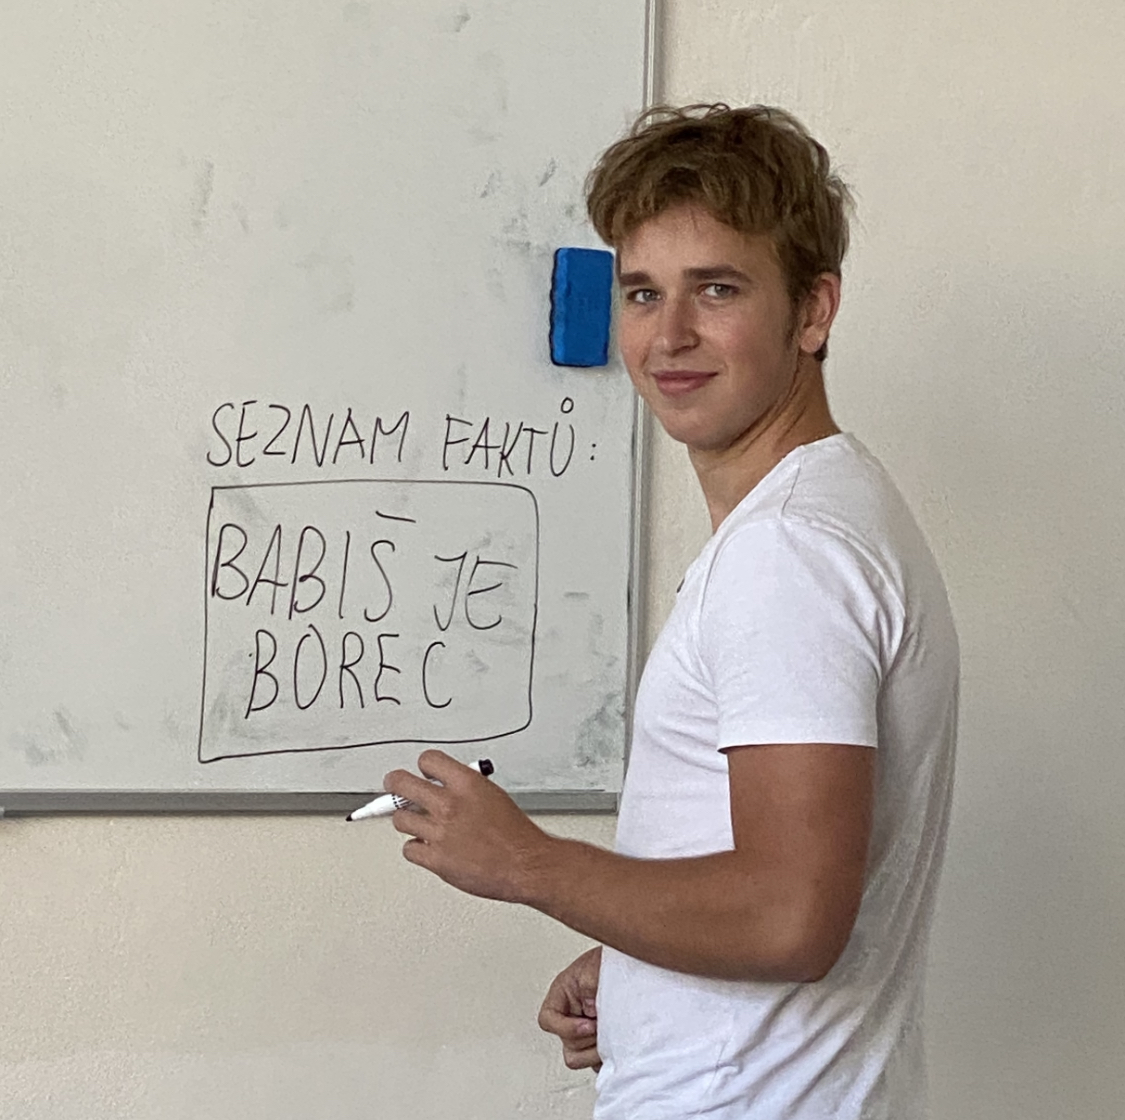 SEZNAM FAKTŮ:
BABIŠ JE
BOREC